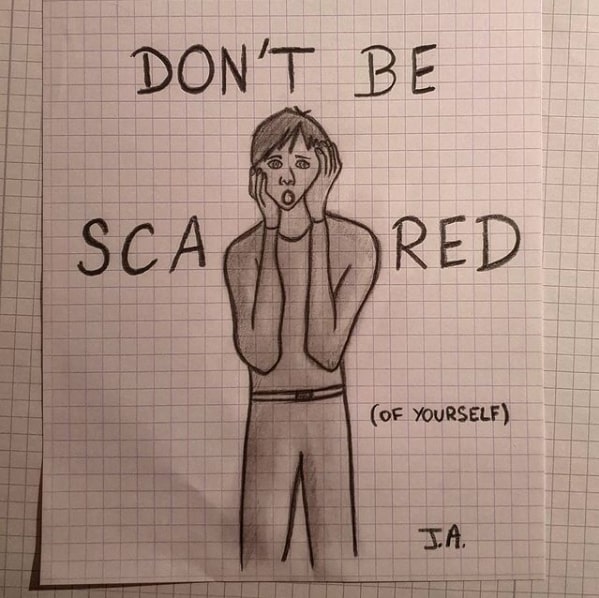 DON'T BE
SCA RED
(OF YOURSELF)
J.A.